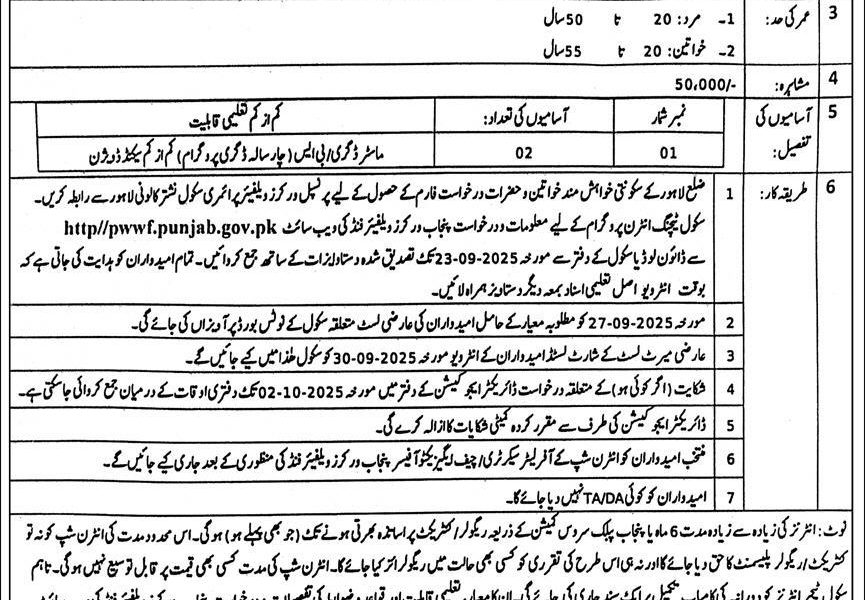 3 عمر کی حد: 1۔ مرد: 20 تا 50سال
2۔ خواتین: 20 تا 55سال
4 مشاہرہ: 50,000/-
5 آسامیوں کی تفصیل:
نمبر شمار آسامیوں کی تعداد: کم از کم تعلیمی قابلیت
01 02 ماسٹر ڈگری/بی ایس (چار سالہ ڈگری پروگرام) کم از کم سیکنڈ ڈویژن
6 طریقہ کار: 1 ضلع لاہور کے سکونتی خواہش مند خواتین و حضرات درخواست فارم کے حصول کے لیے پرنسپل ورکرز ویلفیئر پرائمری سکول نشتر کالونی لاہور سے رابطہ کریں۔
سکول ٹیچنگ انٹرن پروگرام کے لیے معلومات و درخواست پنجاب ورکرز ویلفیئر فنڈ کی ویب سائٹ http//pwwf.punjab.gov.pk
سے ڈائون لوڈ یا سکول کے دفتر سے مورخہ 23-09-2025 تک تصدیق شدہ دستاویزات کے ساتھ جمع کروائیں۔ تمام امیدواران کو ہدایت کی جاتی ہے کہ
بوقت انٹرویو اصل تعلیمی اسناد بمعہ دیگر دستاویز ہمراہ لائیں۔
2 مورخہ 27-09-2025 کو مطلوبہ معیار کے حامل امیدواران کی عارضی لسٹ متعلقہ سکول کے نوٹس بورڈ پر آویزاں کی جائے گی۔
3 عارضی میرٹ لسٹ کے شارٹ لسٹڈ امیدواران کے انٹرویو مورخہ 30-09-2025 کو سکول ھذا میں کیے جائیں گے۔
4 شکایت (اگر کوئی ہو) کے متعلقہ درخواست ڈائریکٹر ایجوکیشن کے دفتر میں مورخہ 02-10-2025 تک دفتری اوقات کے درمیان جمع کروائی جاسکتی ہے۔
5 ڈائریکٹر ایجوکیشن کی طرف سے مقرر کردہ کمیٹی شکایات کا ازالہ کرے گی۔
6 منتخب امیدواران کو انٹرن شپ کے آفر لیٹر سیکرٹری/چیف ایگزیکٹو آفیسر پنجاب ورکرز ویلفیئر فنڈ کی منظوری کے بعد جاری کیے جائیں گے۔
7 امیدواران کو کوئی TA/DA نہیں دیا جائے گا۔
نوٹ: انٹرنز کی زیادہ سے زیادہ مدت 6 ماہ یا پنجاب پبلک سروس کمیشن کے ذریعہ ریگولر/کنٹریکٹ پر اساتذہ بھرتی ہونے تک (جو بھی پہلے ہو) ہوگی۔ اس محدود مدت کی انٹرن شپ کو نہ تو
کنٹریکٹ/ریگولر پلیسمنٹ کا حق دیا جائے گا اور نہ ہی اس طرح کی تقرری کو کسی بھی حالت میں ریگولرائز کیا جائے گا۔ انٹرن شپ کی مدت کسی بھی قیمت پر قابل توسیع نہیں ہوگی۔ تاہم
سکول ٹیچر انٹرنز کو دورانیہ کی کامیاب تکمیل پر ایک سند جاری کی جائے گی۔